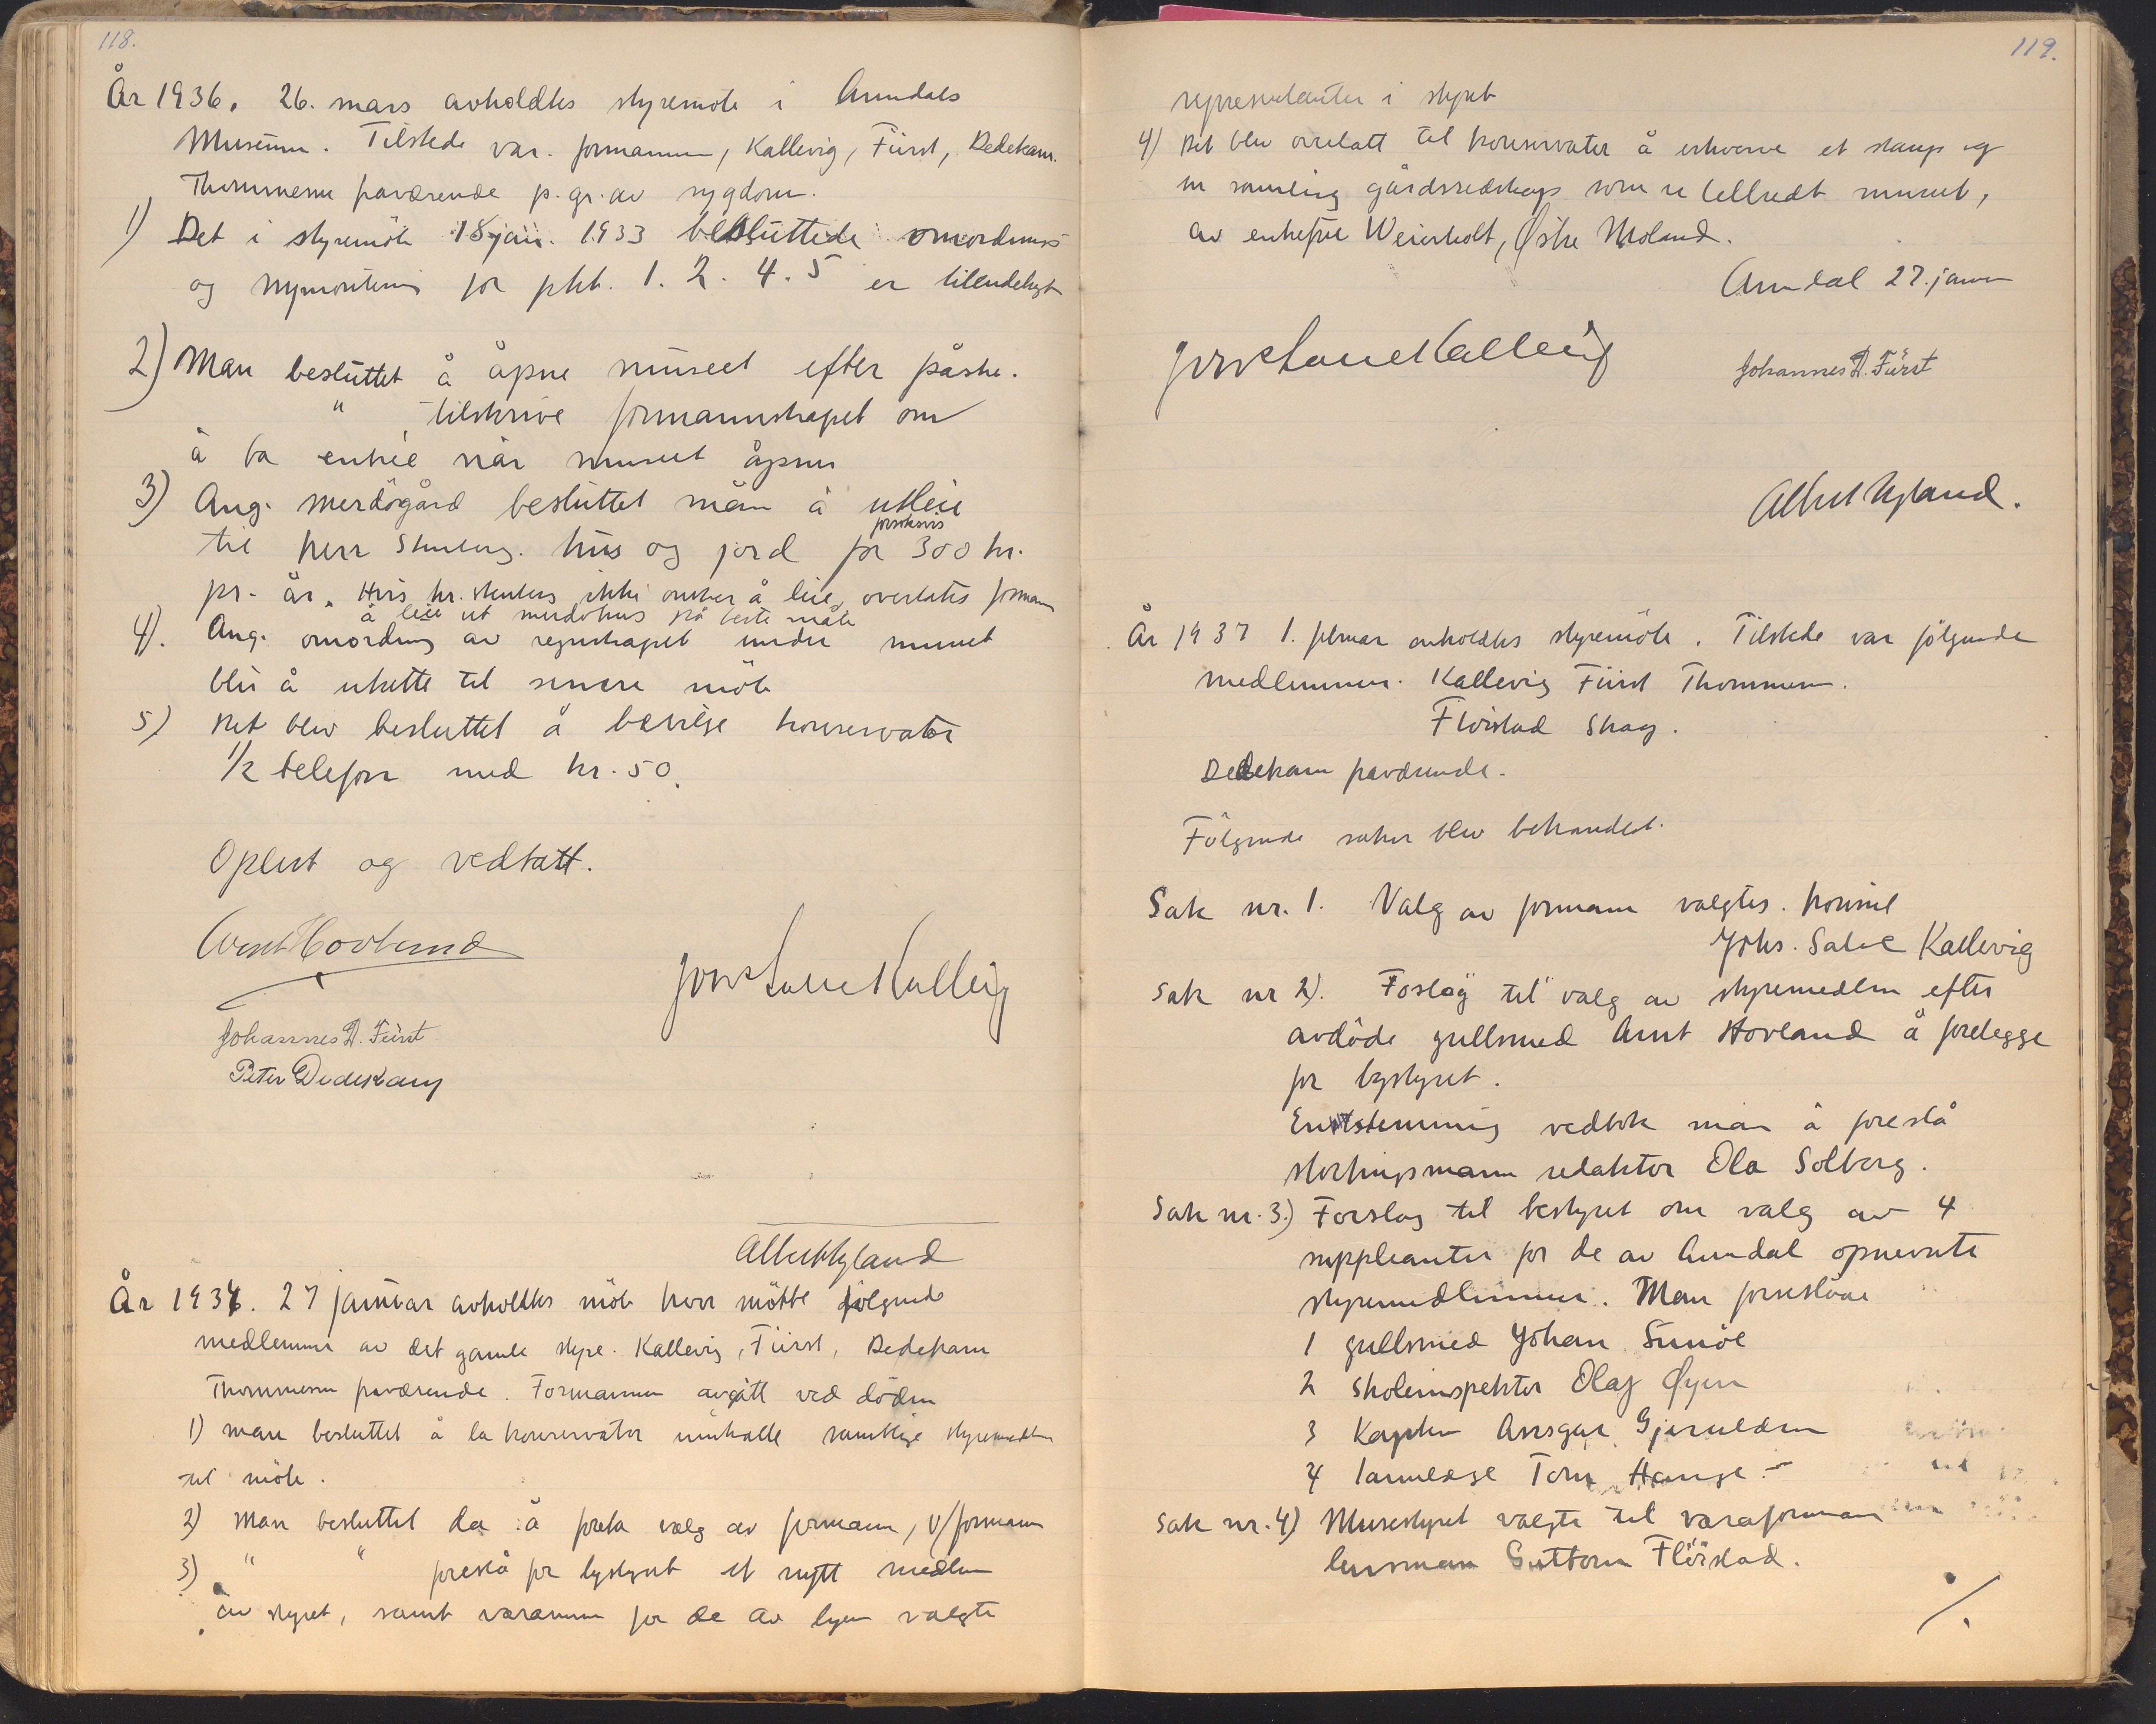 118.
År 1936. 26. mars avholdtes styremöte i Arendals
Museum. Tilstede var. formannen, Kallevig, Fürst, Dedekam.
Thommesen fraværende p.gr.av sygdom.
1) Det i styremöte 18 jan. 1933 besluttede omordning
og nymontering for pkt. 1. 2. 4. 5 er tilendebragt
2) Man besluttet å åpne museet efter påske.
" tilskrive formannskapet om
å ta entrée når museet åpnes
3) Ang. Merdögård besluttet man å utleie
forsöksvis
til herr Stenberg. hus og jord for 300 kr.
pr. år. Hvis hr. Stenberg ikke önsker å leie, overlates formann
å leie ut merdöhus på beste måte
4). Ang. omordning av regnskapet under museet
blir å utsette til senere möte
5) Det blev besluttet å bevilge konservator
1/2 telefon med kr. 50.
Oplest og vedtatt.
Arnt Hovland
Johs Salve Kallevig
Johannes D. Fürst
Peter Dedekam
Albert Ugland
År 1937. 27 januar avholdtes möte hvor mötte fölgende
medlemmer av det gamle styre. Kallevig, Fürst, Dedekam
Thommesen fraværende. Formannen avgått ved döden
1) man besluttet å la konservator innkalle samtlige styremedlem
til möte.
2) Man besluttet da å foreta valg av formann, v/formann
3) " " foreslå for bystyret et nytt medlem
av styret, samt varamenn for de av byen valgte
119.
representanter i styret
4) Det blev overlatt til konservator å erhverve et staup og
en samling gårdsredskap som er tilbudt museet,
av enkefrue Weierholt, Østre Moland.
Arendal 27. januar
Johs Salve Kallevig
Johannes D. Fürst
Albert Ugland.
År 1937 1. februar avholdtes styremöte. Tilstede var fölgende
medlemmer. Kallevig Fürst Thommesen.
Flörstad Skag.
Dedekam fraværende.
Fölgende saker blev behandlet.
Sak nr. 1. Valg av formann valgtes. konsul
Johs. Salve Kallevig
Sak nr 2). Foslag til valg av styremedlem efter
avdöde gullsmed Arnt Hovland å forelegge
for bystyret.
Enstemmig vedtok man å foreslå
stortingsmann redaktör Ola Solberg.
Sak nr. 3.) Forslag til bestyret om valg av 4
suppleanter for de av Arendal opnevnte
styremedlemmer. Man foreslåe
1 gullsmed Johan Sunöe
2 Skoleinspektör Olaf Øyen
3 Kaptein Ansgar Gjeruldsen
4 tannlæge Tom Hauge.-
Sak nr. 4) Musestyret valgte til varaformann
lensmann Guttorm Flörstad.
./.